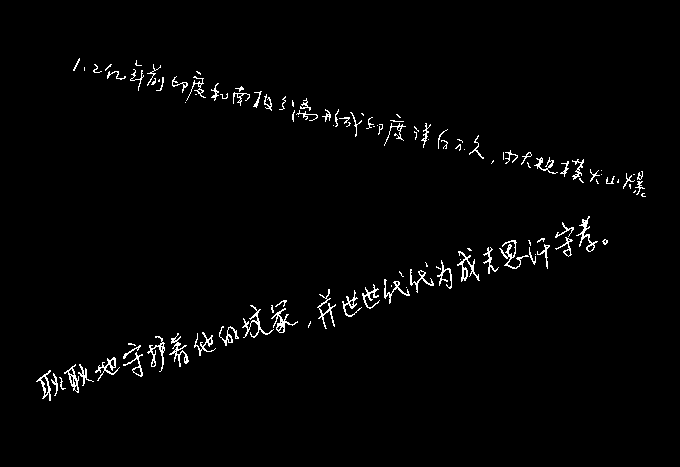 1.2亿年前印度和南极分离形成印度洋后不久，由大规模火山爆
耿耿地守护着他的坟冢，并世世代代为成吉思汗守孝。